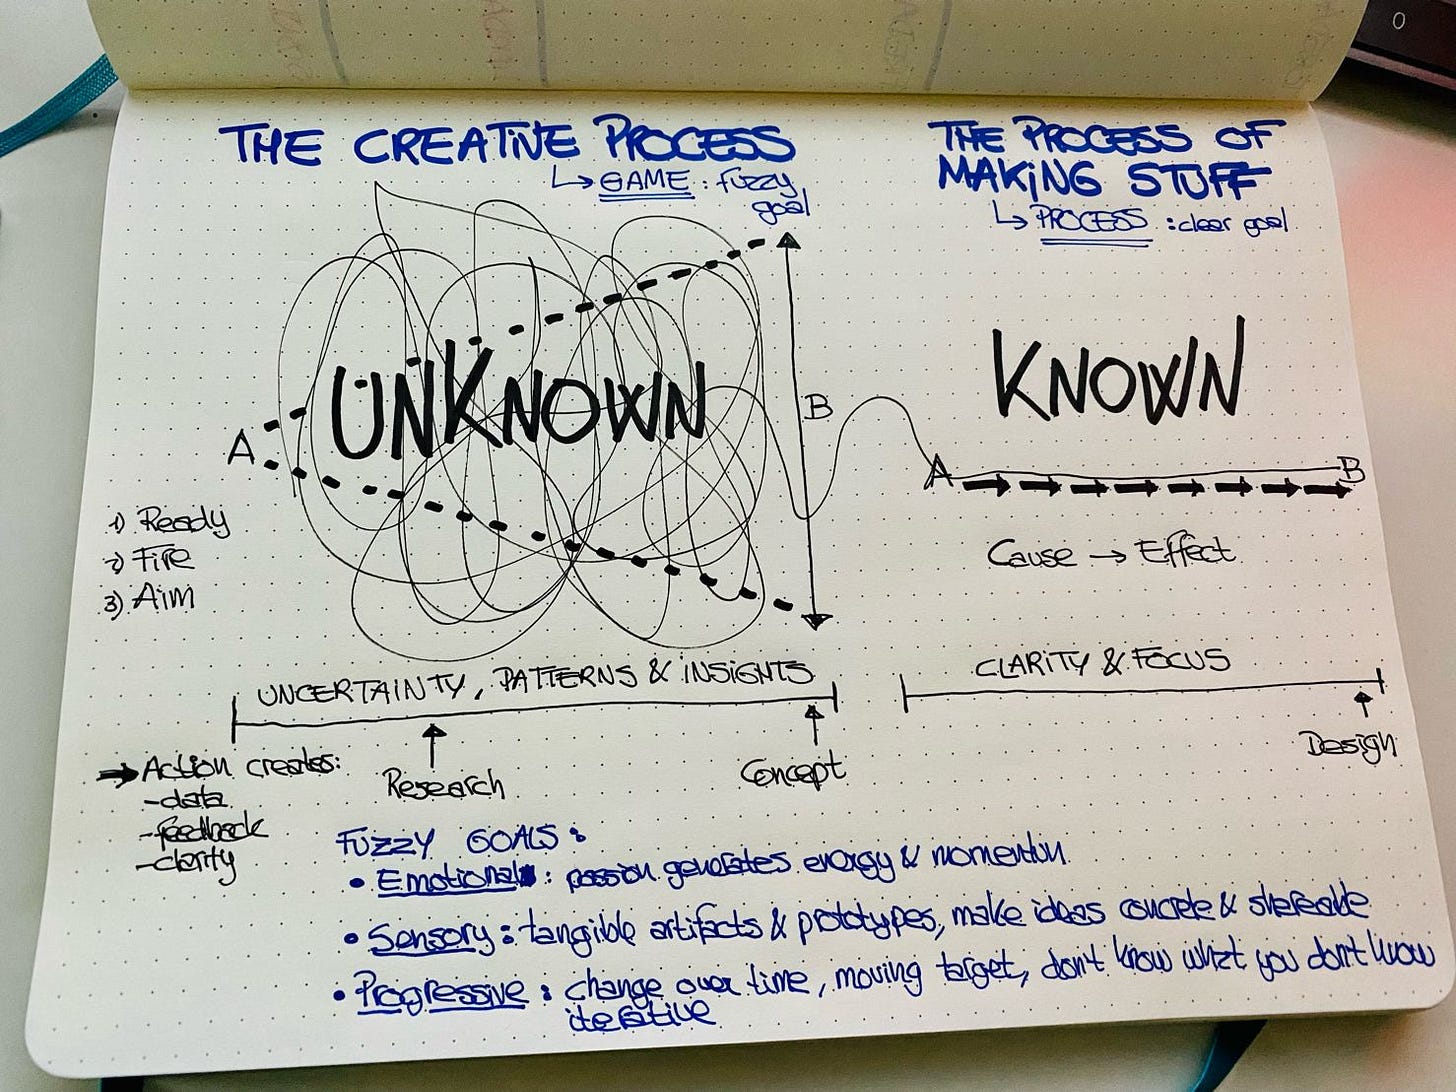 THE CREATIVE PROCESS
↳ GAME : fuzzy
goal
THE PROCESS OF
MAKING STUFF
↳ PROCESS : clear goal
UNKNOWN
A
B
KNOWN
A
B
Cause → Effect
1) Ready
2) Fire
3) Aim
UNCERTAINTY, PATTERNS & INSIGHTS
CLARITY & FOCUS
Research
Concept
Design
→ Action creates:
- data
- feedback
- clarity
FUZZY GOALS :
• Emotional : passion generates energy & momentum
• Sensory : tangible artifacts & prototypes, make ideas concrete & shareable
• Progressive : change over time, moving target, don't know what you don't know
iterative